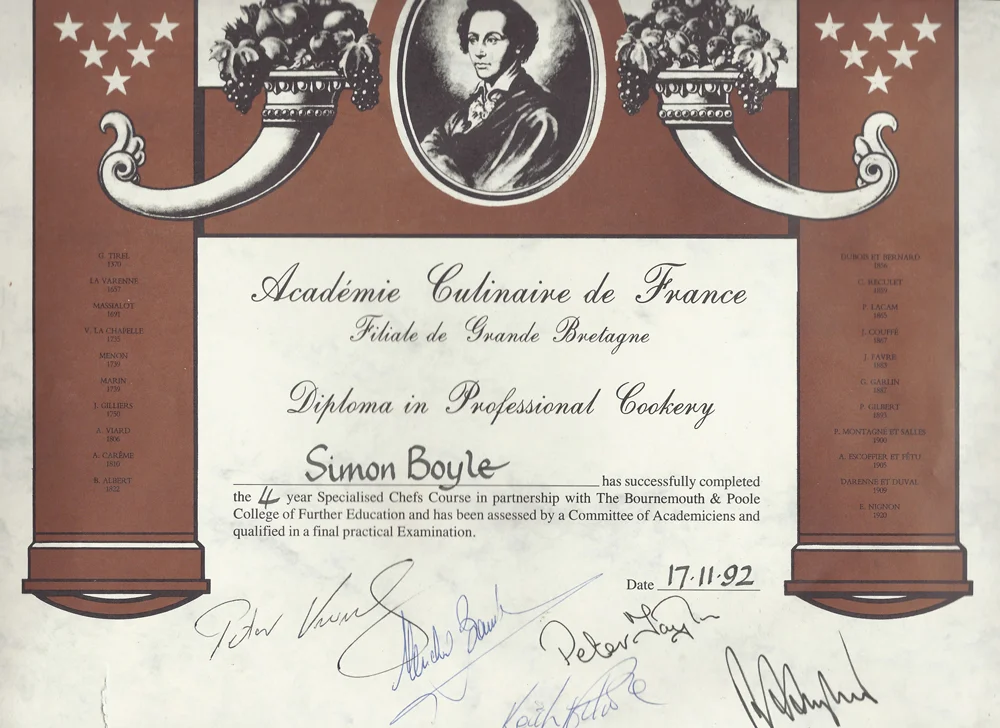 Académie Culinaire de France
Filiale de Grande Bretagne
Diploma in Professional Cookery
Simon Boyle has successfully completed
the 4 year Specialised Chefs Course in partnership with The Bournemouth & Poole
College of Further Education and has been assessed by a Committee of Academiciens and
qualified in a final practical Examination.
Date 17.11.92
G. TIREL
1370
LA VARENNE
MASSIALOT
V. LA CHAPELLE
1735
MENON
1739
MARIN
1739
J. GILLIERS
A. VIARD
1806
A. CARÊME
1810
B. ALBERT
1822
DUBOIS ET BERNARD
1856
C. RECULET
P. LACAM
1865
J. GOUFFÉ
1867
J. FAVRE
1883
G. GARLIN
1887
P. GILBERT
1893
P. MONTAGNE ET SALLES
1900
A. ESCOFFIER ET FÉTU
1905
DARENNE ET DUVAL
1909
E. NIGNON
1920
Peter
Peter